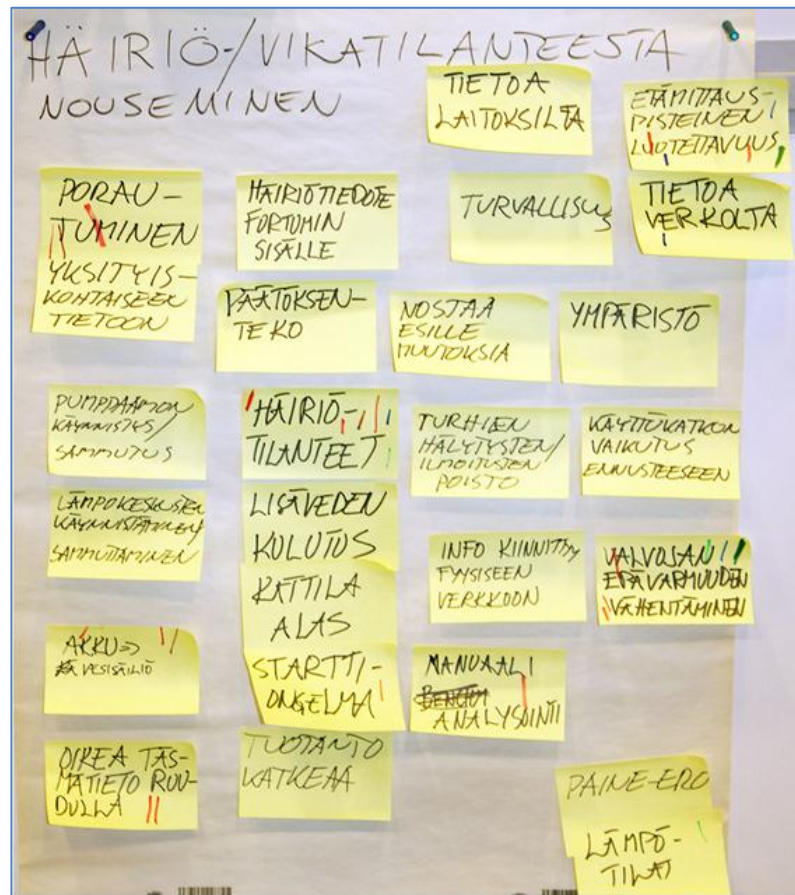 HÄIRIÖ-/VIKATILANTEESTA
NOUSEMINEN
TIETOA
LAITOKSILTA
ETÄMITTAUS-
PISTEINEN
LUOTETTAVUUS
PORAU-
TUMINEN
YKSITYIS-
KOHTAISEEN
TIETOON
HÄIRIÖTIEDOTE
FORTUMIN
SISÄLLE
TURVALLISUS
TIETOA
VERKOLTA
PÄÄTÖKSEN-
TEKO
NOSTAA
ESILLE
MUUTOKSIA
YMPÄRISTÖ
PUMPPAAMON
KÄYNNISTYS/
SAMMUTUS
HÄIRIÖ-
TILANTEET
TURHIEN
HÄLYTYSTEN/
ILMOITUSTEN
POISTO
KÄYTTÖKATKON
VAIKUTUS
ENNUSTEESEEN
LÄMPÖKESKUSTEN
KÄYNNISTÄMINEN/
SAMMUTTAMINEN
LISÄVEDEN
KULUTUS
KATTILA
ALAS
STARTTI-
ONGELMA
INFO KIINNITTYY
FYYSISEEN
VERKKOON
VALVOJAN
EPÄVARMUUDEN
VÄHENTÄMINEN
AKKU =>
VESISÄILIÖ
MANUAALI
ANALYSOINTI
OIKEA TÄS-
MÄTIETO RUU-
DULLA
TUOTANTO
KATKEAA
PAINE-ERO
LÄMPÖ-
TILAT